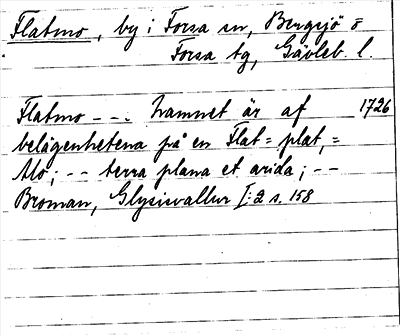 Flatmo, by i Forsa sn, Bergsjö o
Forsa tg, Gävleb. l.
Flatmo - - : namnet är af 1726
belägenhetena på en Flat= plat,=
Mo; - - terra plana et arida; - -
Broman, Glysisvallur I:2 s. 158